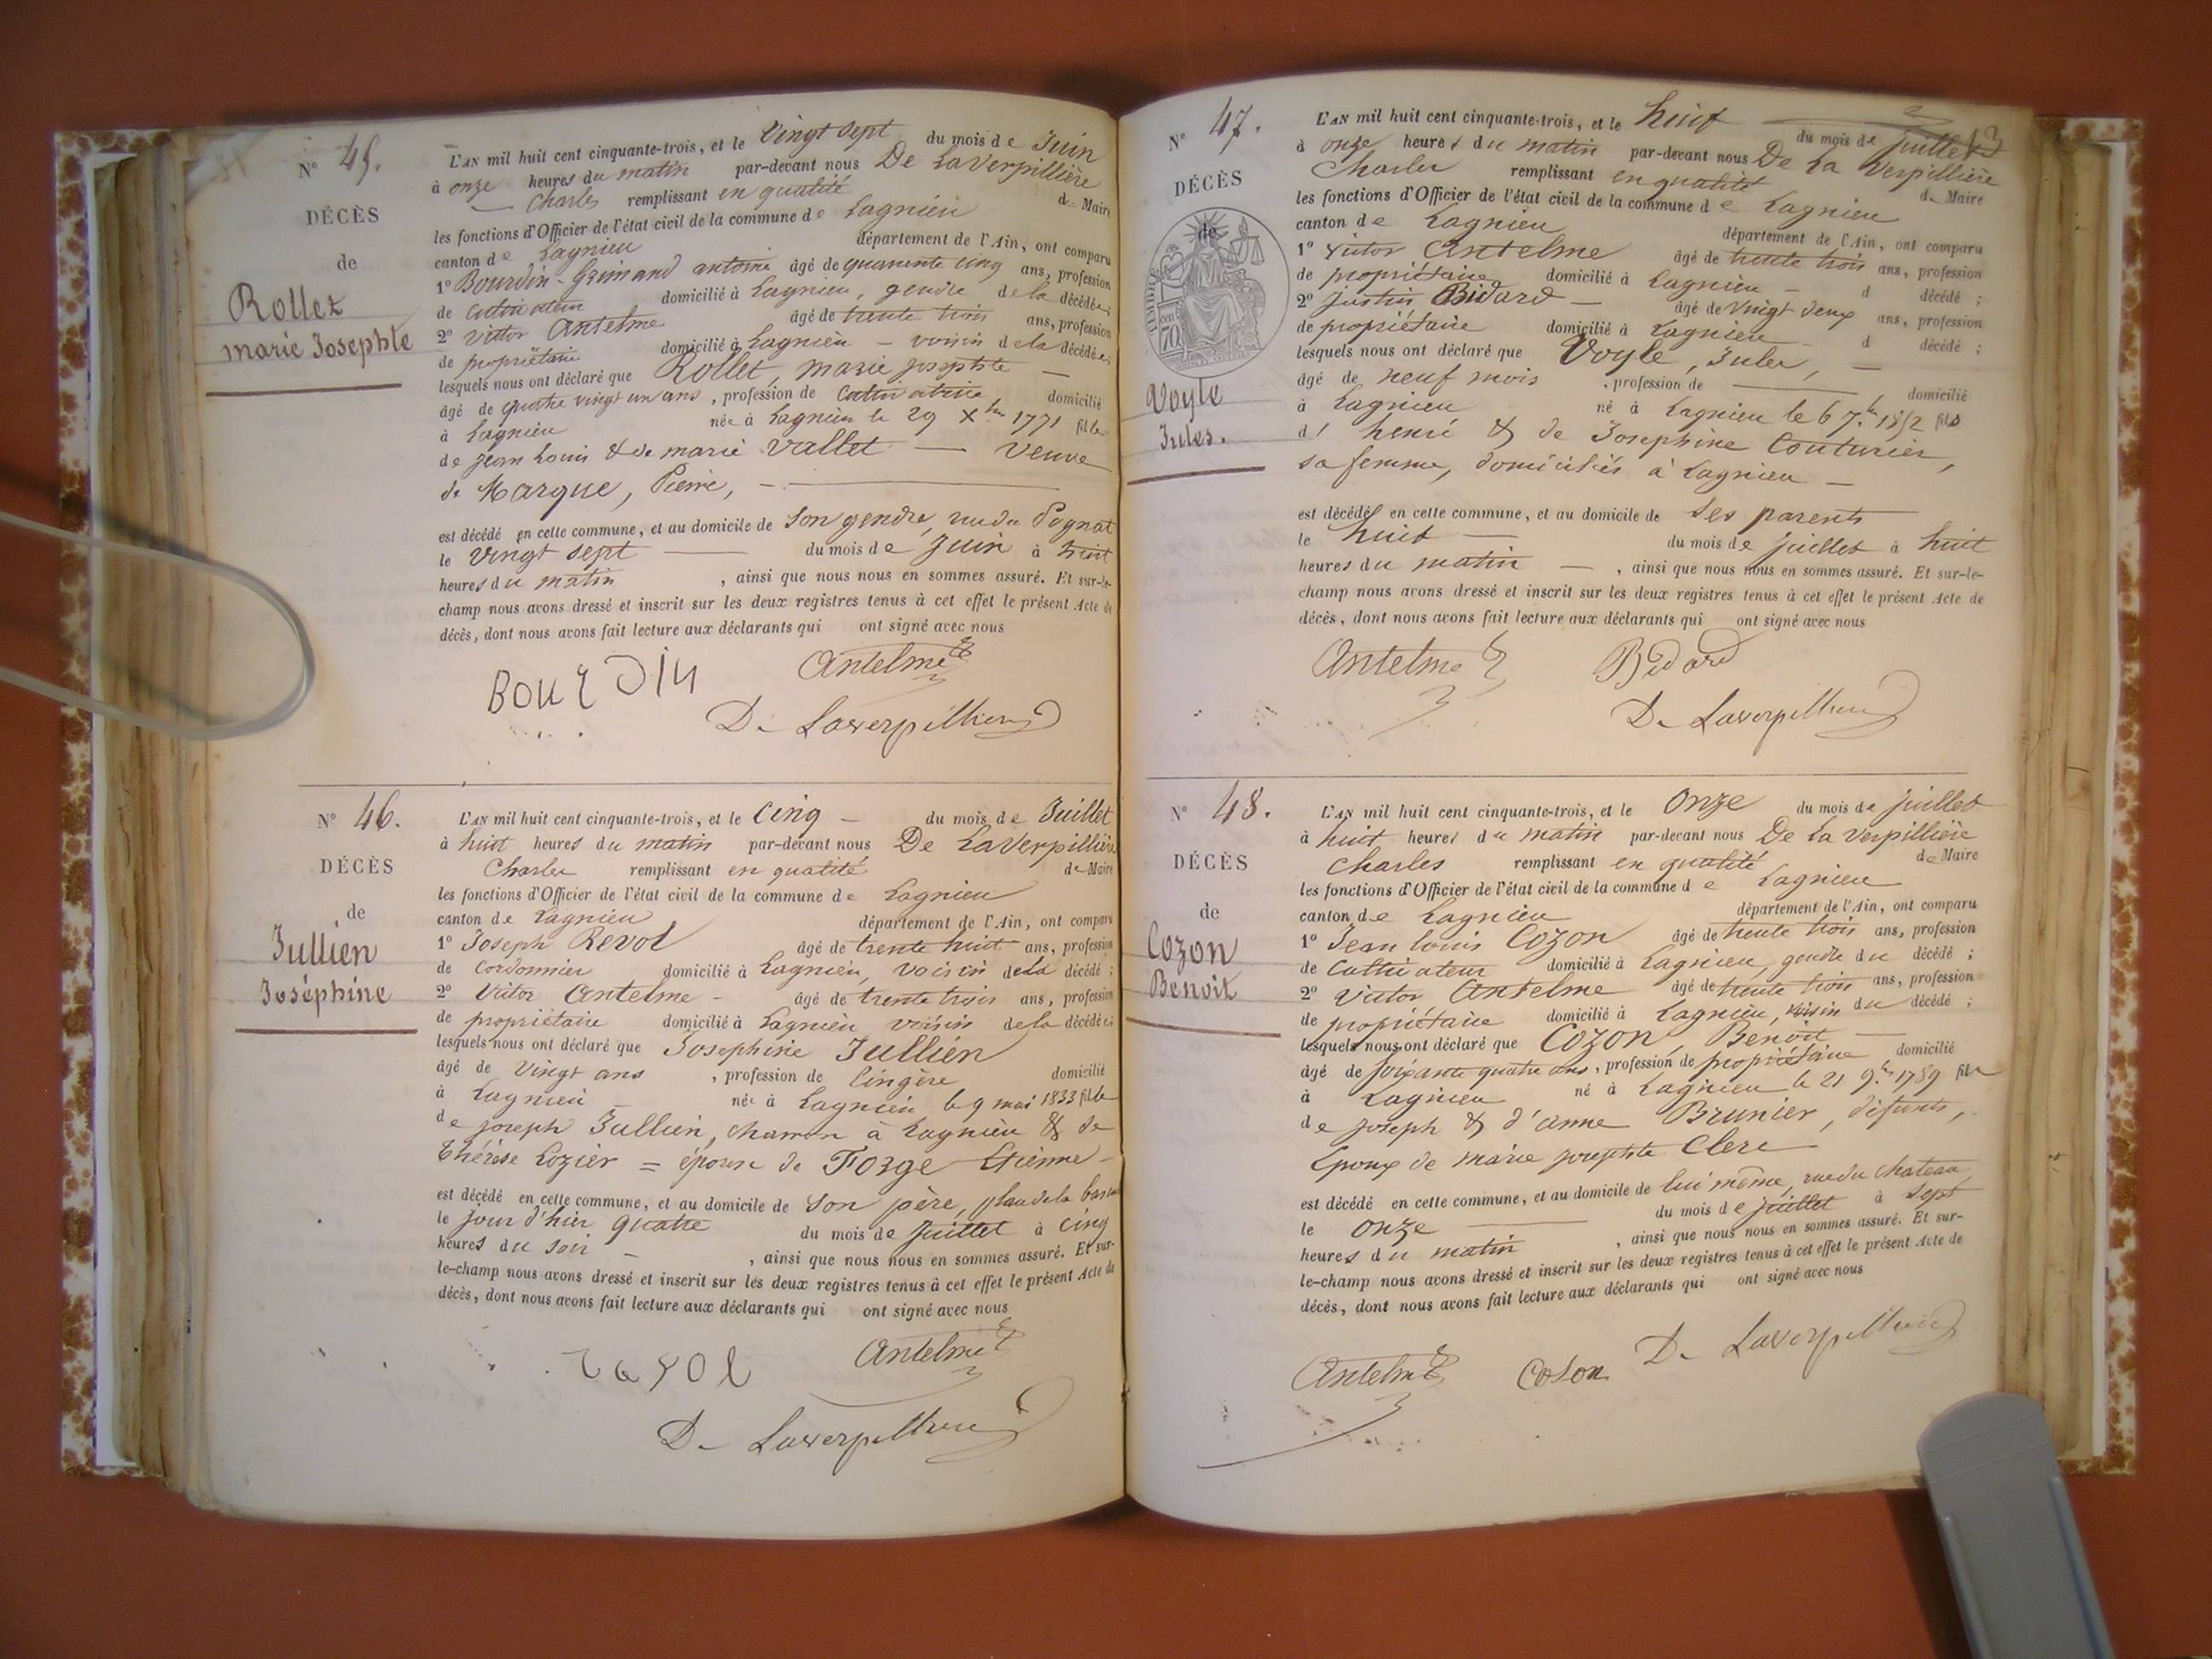 N° 45.
DÉCÈS
de
Rollet
marie Josephte
L'AN mil huit cent cinquante-trois, et le Vingt sept du mois de Juin
à onze heures du matin par-devant nous De LaVerpillière
Charles remplissant en qualité de Maire
les fonctions d'Officier de l'état civil de la commune de Lagnieu
canton de Lagnieu département de l'Ain, ont comparu
1° Bourdin-Grimand antoine âgé de quarante cinq ans, profession
de cultivateur domicilié à Lagnieu, gendre de la décédée;
2° Victor Antelme âgé de trente trois ans, profession
de propriétaire domicilié à Lagnieu - voisin de la décédée;
lesquels nous ont déclaré que Rollet, marie josephte
âgé de quatre vingt un ans, profession de cultivatrice domicilié
à Lagnieu née à Lagnieu le 29 Xbre 1771 fille
de jean Louis & de marie Vallet — Veuve
de Marque, Pierre,
est décédé en cette commune, et au domicile de son gendre, rue du Pognat
le vingt sept du mois de Juin à huit
heures du matin, ainsi que nous nous en sommes assuré. Et sur-le-
champ nous avons dressé et inscrit sur les deux registres tenus à cet effet le présent Acte de
décès, dont nous avons fait lecture aux déclarants qui ont signé avec nous
BOURDIN Antelme
De Laverpilliere
N° 46.
DÉCÈS
de
Jullien
Joséphine
L'AN mil huit cent cinquante-trois, et le Cinq du mois de Juillet
à huit heures du matin par-devant nous De LaVerpillière
Charles remplissant en qualité de Maire
les fonctions d'Officier de l'état civil de la commune de Lagnieu
canton de Lagnieu département de l'Ain, ont comparu
1° Joseph Revol âgé de trente huit ans, profession
de Cordonnier domicilié à Lagnieu, voisin de la décédé;
2° Victor Antelme - âgé de trente trois ans, profession
de propriétaire domicilié à Lagnieu voisin de la décédée;
lesquels nous ont déclaré que Josephine Jullien
âgé de Vingt ans, profession de lingère domicilié
à Lagnieu née à Lagnieu le 9 mai 1833 fille
de joseph Jullien, charron à Lagnieu & de
Thérèse Lozier = épouse de Forge Etienne -
est décédé en cette commune, et au domicile de son père,
le jour d'hier quatre du mois de Juillet à Cinq
heures du soir -, ainsi que nous nous en sommes assuré. Et sur-
le-champ nous avons dressé et inscrit sur les deux registres tenus à cet effet le présent Acte de
décès, dont nous avons fait lecture aux déclarants qui ont signé avec nous
Antelme
De Laverpilliere
N° 47.
DÉCÈS
de
TIMBRE
70
Voyle
Jules.
L'AN mil huit cent cinquante-trois, et le huit du mois de juillet
à onze heures du matin par-devant nous De La Verpillière
Charles remplissant en qualité de Maire
les fonctions d'Officier de l'état civil de la commune de Lagnieu
canton de Lagnieu département de l'Ain, ont comparu
1° Victor Antelme âgé de trente trois ans, profession
de propriétaire domicilié à Lagnieu - d décédé;
2° justin Bidard - âgé de Vingt deux ans, profession
de propriétaire domicilié à Lagnieu - d décédé;
lesquels nous ont déclaré que Voyle, Jules, -
âgé de neuf mois, profession de domicilié
à Lagnieu né à Lagnieu le 6 7bre 1852 fils
d' henri & de Josephine Couturier,
sa femme, domiciliés à Lagnieu -
est décédé en cette commune, et au domicile de ses parents
le huit du mois de juillet à huit
heures du matin -, ainsi que nous nous en sommes assuré. Et sur-le-
champ nous avons dressé et inscrit sur les deux registres tenus à cet effet le présent Acte de
décès, dont nous avons fait lecture aux déclarants qui ont signé avec nous
Antelme Bidard
De Laverpilliere
N° 48.
DÉCÈS
de
Cozon
Benoit
L'AN mil huit cent cinquante-trois, et le onze du mois de juillet
à huit heures du matin par-devant nous De La Verpillière
Charles remplissant en qualité de Maire
les fonctions d'Officier de l'état civil de la commune de Lagnieu
canton de Lagnieu département de l'Ain, ont comparu
1° Jean louis Cozon âgé de trente trois ans, profession
de Cultivateur domicilié à Lagnieu, gendre du décédé;
2° Victor Antelme âgé de trente trois ans, profession
de propriétaire domicilié à Lagnieu, voisin du décédé;
lesquels nous ont déclaré que Cozon, Benoit
âgé de soixante quatre ans, profession de propriétaire domicilié
à Lagnieu né à Lagnieu le 21 9bre 1789 fils
de joseph & d'anne Brunier, défunts,
Epoux de marie josephte Clerc
est décédé en cette commune, et au domicile de lui même, rue du chateau
le onze du mois de juillet à sept
heures du matin, ainsi que nous nous en sommes assuré. Et sur-
le-champ nous avons dressé et inscrit sur les deux registres tenus à cet effet le présent Acte de
décès, dont nous avons fait lecture aux déclarants qui ont signé avec nous
Antelme Coson De Laverpilliere